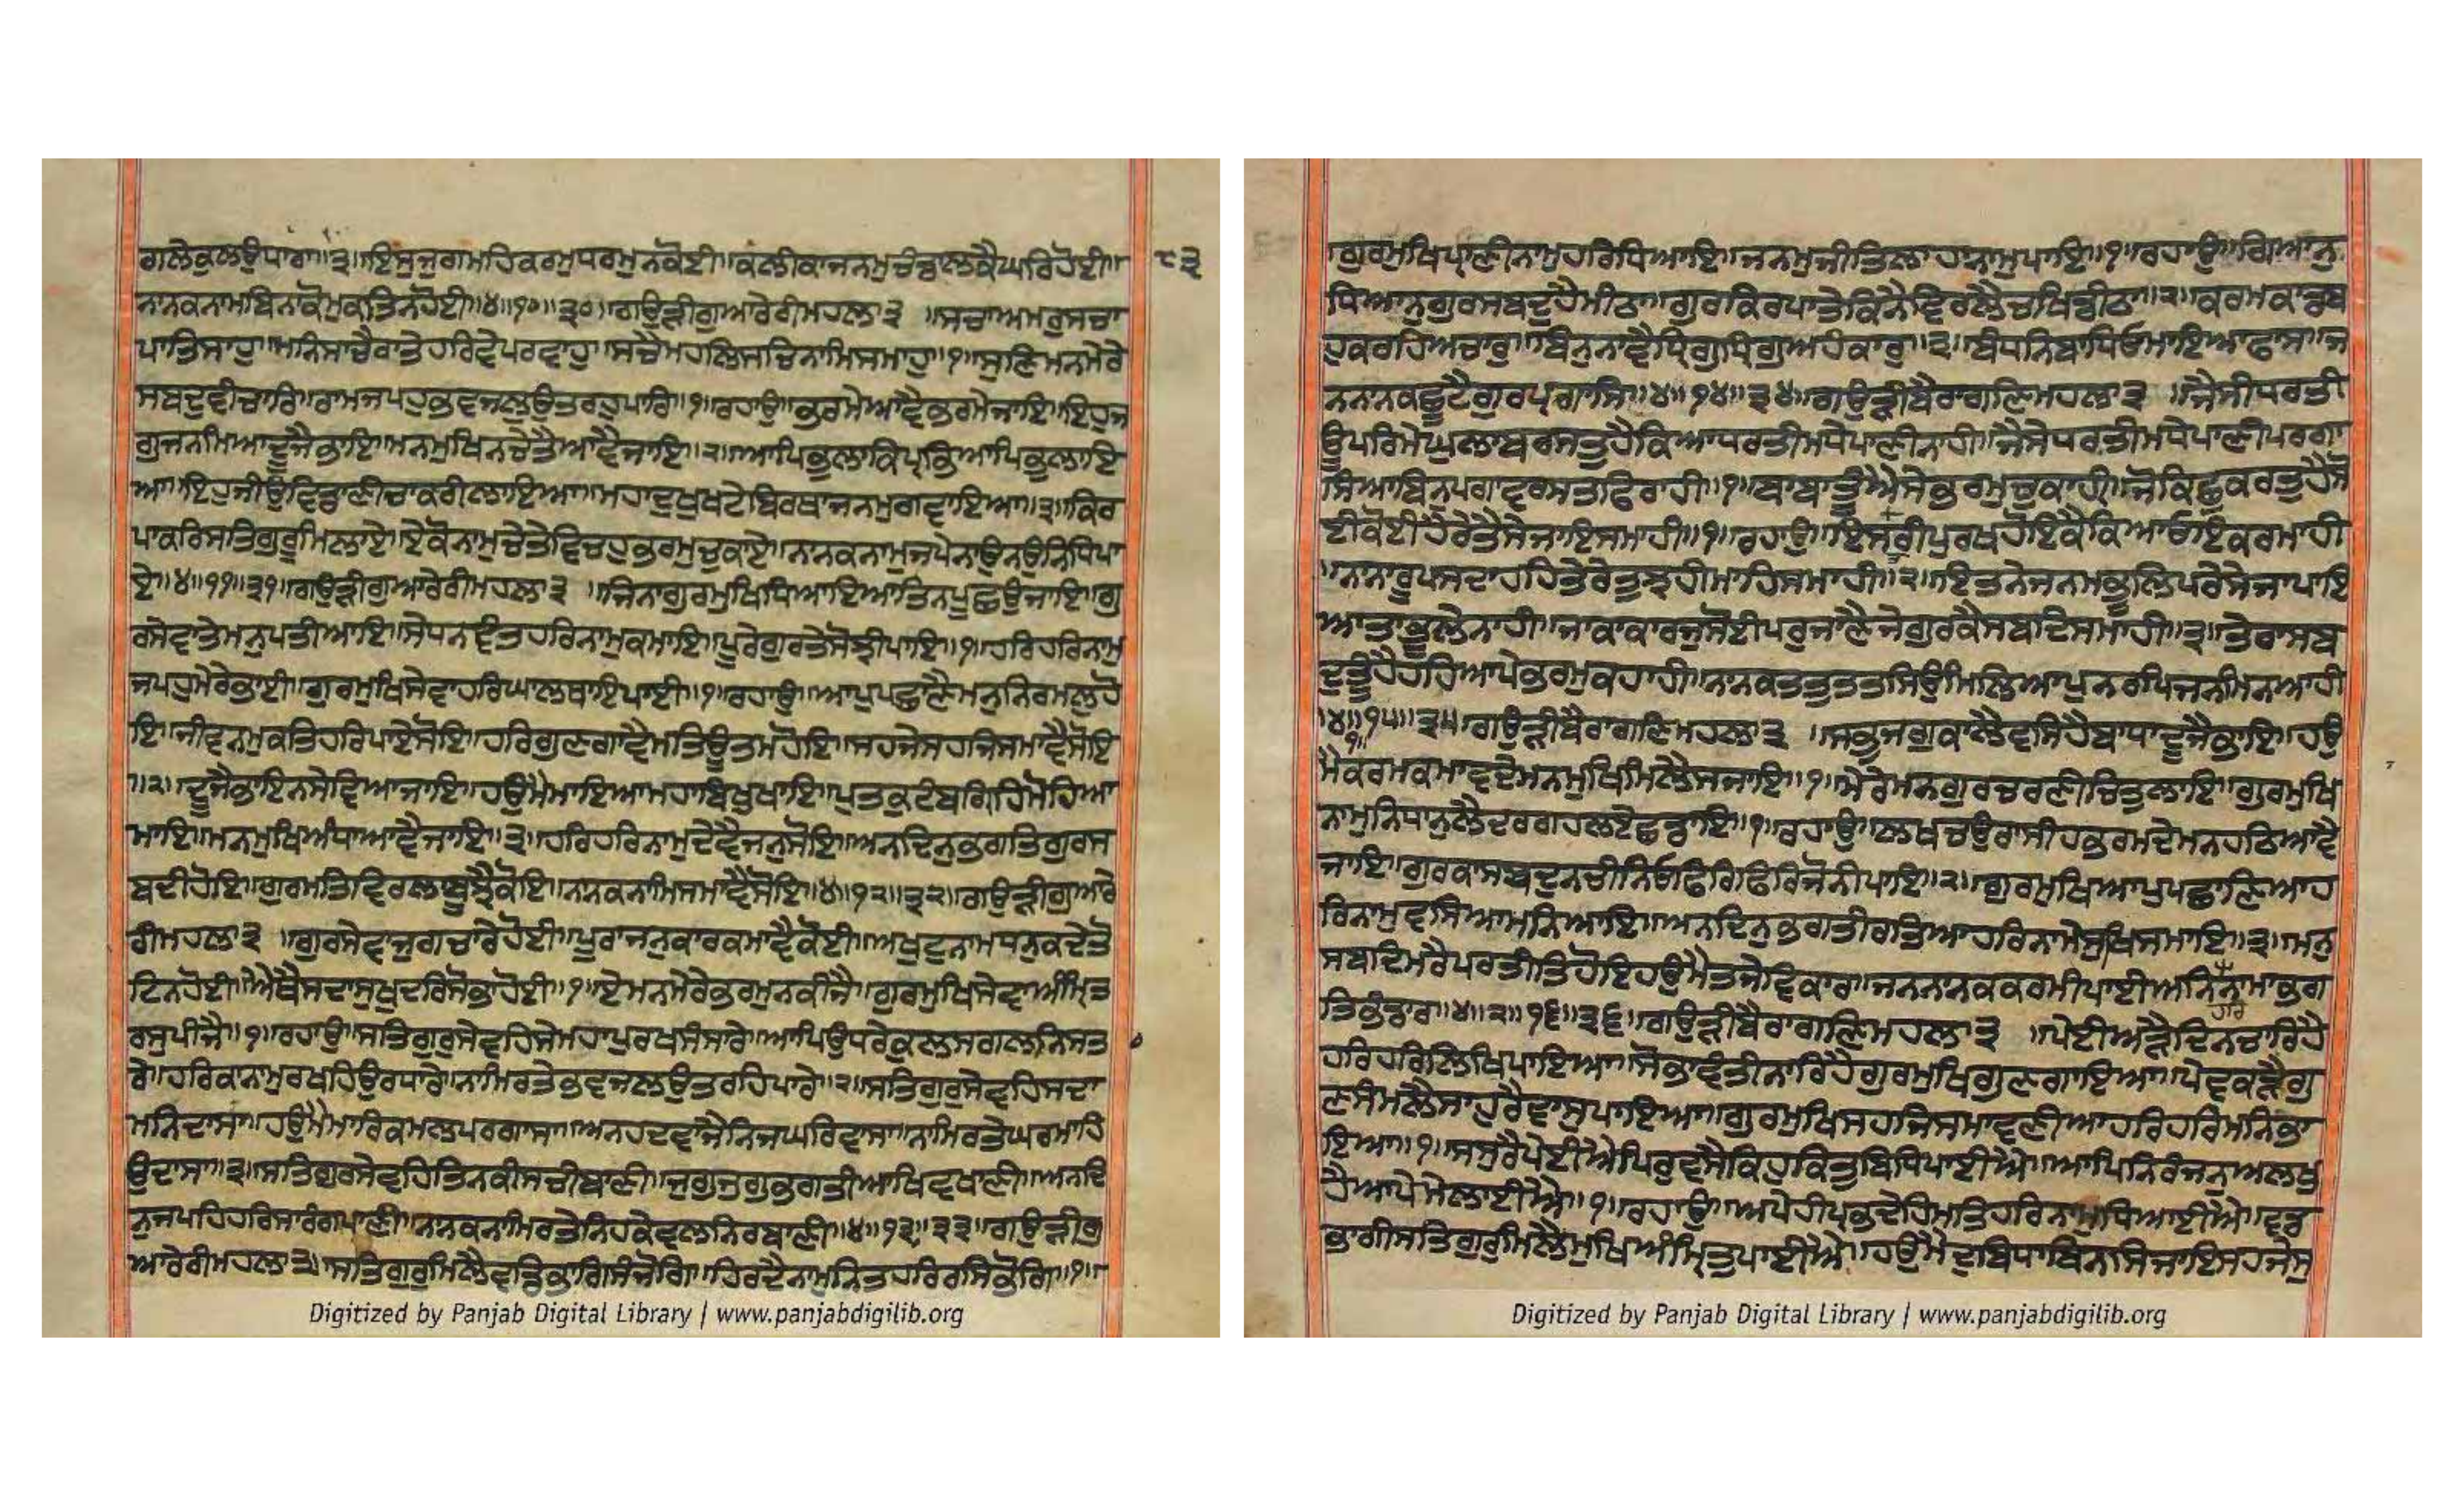 ਗਲੇਕੁਲਉਪਾਰਾ॥੩॥ਇਸੁਜੁਗਮਹਿਕਰਮੁਧਰਮੁਨਕੋਈ॥ਕਲੀਕਾਜਨਮੁਚੰਡਾਲਕੈਘਰਿਹੋਈ॥
੮੩
ਨਾਨਕਨਾਮਬਿਨਾਕੋਮੁਕਤਿਨਹੋਈ॥੪॥੧੦॥੩੦॥ਗਉੜੀਗੁਆਰੇਰੀਮਹਲਾ੩ ॥ਸਚਾਅਮਰੁਸਚਾ
ਪਾਤਿਸਾਹੁ॥ਮਨਿਸਾਚੈਰਾਤੇਹਰਿਵੇਪਰਵਾਹੁ॥ਸਚੈਮਹਲਿਸਚਿਨਾਮਿਸਮਾਹੁ॥੧॥ਸੁਣਿਮਨਮੇਰੇ
ਸਬਦੁਵੀਚਾਰਿ॥ਰਾਮਜਪਹੁਭਵਜਲੁਉਤਰਹੁਪਾਰਿ॥੧॥ਰਹਾਉ॥ਭਰਮੇਆਵੈਭਰਮੇਜਾਇ॥ਇਹੁਜ
ਗੁਜਨਮਿਆਦੂਜੈਭਾਇ॥ਮਨਮੁਖਿਨਚੇਤੈਆਵੈਜਾਇ॥੨॥ਆਪਿਭੁਲਾਕਿਪ੍ਰਭਿਆਪਿਭੁਲਾਇ
ਆ॥ਇਹੁਜੀਉਵਿਡਾਣੀਚਾਕਰੀਲਾਇਆ॥ਮਹਾਦੁਖੁਖਟੇਬਿਰਥਾਜਨਮੁਗਵਾਇਆ॥੩॥ਕਿਰ
ਪਾਕਰਿਸਤਿਗੁਰੂਮਿਲਾਏ॥ਏਕੋਨਾਮੁਚੇਤੇਵਿਚਹੁਭਰਮੁਚੁਕਾਏ॥ਨਾਨਕਨਾਮੁਜਪੇਨਾਉਨਉਨਿਧਿਪਾ
ਏ॥੪॥੧੧॥੩੧॥ਗਉੜੀਗੁਆਰੇਰੀਮਹਲਾ੩ ॥ਜਿਨਾਗੁਰਮੁਖਿਧਿਆਇਆਤਿਨਪੂਛਉਜਾਇ॥ਗੁ
ਰਸੇਵਾਤੇਮਨੁਪਤੀਆਇ॥ਸੇਧਨਵੰਤਹਰਿਨਾਮੁਕਮਾਇ॥ਪੂਰੇਗੁਰਤੇਸੋਝੀਪਾਇ॥੧॥ਹਰਿਹਰਿਨਾਮੁ
ਜਪਹੁਮੇਰੇਭਾਈ॥ਗੁਰਮੁਖਿਸੇਵਾਹਰਿਘਾਲਥਾਇਪਾਈ॥੧॥ਰਹਾਉ॥ਆਪੁਪਛਾਣੈਮਨੁਨਿਰਮਲੁਹੋ
ਇ॥ਜੀਵਨਮੁਕਤਿਹਰਿਪਾਏਸੋਇ॥ਹਰਿਗੁਣਗਾਵੈਮਤਿਊਤਮਹੋਇ॥ਸਹਜੇਸਹਜਿਸਮਾਵੈਸੋਇ
॥੨॥ਦੂਜੈਭਾਇਨਸੇਵਿਆਜਾਇ॥ਹਉਮੈਮਾਇਆਮਹਾਬਿਖੁਖਾਇ॥ਪੁਤਕੁਟੰਬਗ੍ਰਿਹਿਮੋਹਿਆ
ਮਾਇ॥ਮਨਮੁਖਿਅੰਧਾਆਵੈਜਾਇ॥੩॥ਹਰਿਹਰਿਨਾਮੁਦੇਵੈਜਨੁਸੋਇ॥ਅਨਦਿਨੁਭਗਤਿਗੁਰਸ
ਬਦੀਹੋਇ॥ਗੁਰਮਤਿਵਿਰਲਾਬੂਝੈਕੋਇ॥ਨਾਨਕਨਾਮਿਸਮਾਵੈਸੋਇ॥੪॥੧੨॥੩੨॥ਗਉੜੀਗੁਆਰੇ
ਰੀਮਹਲਾ੩ ॥ਗੁਰਸੇਵਾਜੁਗਚਾਰੇਹੋਈ॥ਪੂਰਾਜਨੁਕਾਰਕਮਾਵੈਕੋਈ॥ਅਖੁਟੁਨਾਮਧਨੁਕਦੇਤੋ
ਟਿਨਹੋਈ॥ਐਥੈਸਦਾਸੁਖੁਦਰਿਸੋਭਾਹੋਈ॥੧॥ਏਮਨਮੇਰੇਭਰਮੁਨਕੀਜੈ॥ਗੁਰਮੁਖਿਸੇਵਾਅੰਮ੍ਰਿਤ
ਰਸੁਪੀਜੈ॥੧॥ਰਹਾਉ॥ਸਤਿਗੁਰੁਸੇਵਹਿਸੇਮਹਾਪੁਰਖਸੰਸਾਰੇ॥ਆਪਿਉਧਰੇਕੁਲਸਗਲਨਿਸਤ
ਰੇ॥ਹਰਿਕਾਨਾਮੁਰਖਹਿਉਰਧਾਰੇ॥ਨਾਮਿਰਤੇਭਵਜਲਉਤਰਹਿਪਾਰੇ॥੨॥ਸਤਿਗੁਰੁਸੇਵਹਿਸਦਾ
ਮਨਿਦਾਸਾ॥ਹਉਮੈਮਾਰਿਕਮਲੁਪਰਗਾਸਾ॥ਅਨਹਦਵਾਜੈਨਿਜਘਰਿਵਾਸਾ॥ਨਾਮਿਰਤੇਘਰਮਾਹਿ
ਉਦਾਸਾ॥੩॥ਸਤਿਗੁਰਸੇਵਹਿਤਿਨਕੀਸਚੀਬਾਣੀ॥ਜੁਗੁਜੁਗੁਭਗਤੀਆਖਿਵਖਾਣੀ॥ਅਨਦਿ
ਨੁਜਪਹਿਹਰਿਸਾਰੰਗਪਾਣੀ॥ਨਾਨਕਨਾਮਿਰਤੇਨਿਹਕੇਵਲਨਿਰਬਾਣੀ॥੪॥੧੩॥੩੩॥ਗਉੜੀਗੁ
ਆਰੇਰੀਮਹਲਾ੩॥ਸਤਿਗੁਰੁਮਿਲੈਵਡਿਭਾਗਿਸੰਜੋਗਿ॥ਹਿਰਦੈਨਾਮੁਨਿਤਹਰਿਰਸਿਭੋਗਿ॥੧॥
Digitized by Panjab Digital Library | www.panjabdigilib.org
ਗੁਰਮੁਖਿਪ੍ਰਾਣੀਨਾਮੁਹਰਿਧਿਆਇ॥ਜਨਮੁਜੀਤਿਲਾਹਾਨਾਮੁਪਾਇ॥੧॥ਰਹਾਉ॥ਗਿਆਨੁ
ਧਿਆਨੁਗੁਰਸਬਦੁਹੈਮੀਠਾ॥ਗੁਰਕਿਰਪਾਤੇਕਿਨੈਵਿਰਲੈਚਖਿਡੀਠਾ॥੨॥ਕਰਮਕਾਂਡਬ
ਹੁਕਰਹਿਅਚਾਰੁ॥ਬਿਨੁਨਾਵੈਧ੍ਰਿਗੁਧ੍ਰਿਗੁਅਹੰਕਾਰੁ॥੩॥ਬੰਧਨਿਬਾਧਿਓਮਾਇਆਫਾਸ॥ਜ
ਨਨਾਨਕਛੂਟੈਗੁਰਪ੍ਰਗਾਸਿ॥੪॥੧੪॥੩੪॥ਗਉੜੀਬੈਰਾਗਣਿਮਹਲਾ੩ ॥ਜੈਸੀਧਰਤੀ
ਊਪਰਿਮੇਘੁਲਾਬਰਸਤੁਹੈਕਿਆਧਰਤੀਮਧੇਪਾਣੀਨਾਹੀ॥ਜੈਸੇਧਰਤੀਮਧੇਪਾਣੀਪਰਗਾ
ਸਿਆਬਿਨੁਪਗਾਵਰਸਤਫਿਰਾਹੀ॥੧॥ਬਾਬਾਤੂੰਐਸੇਭਰਮੁਚੁਕਾਹੀ॥ਜੋਕਿਛੁਕਰਤੁਹੈਸੋ
ਈਕੋਈਹੈਰੇਤੈਸੇਜਾਇਸਮਾਹੀ॥੧॥ਰਹਾਉ॥ਇਸਤਰੀਪੁਰਖਹੋਇਕੈਕਿਆਓਇਕਰਮਾਹੀ
॥ਨਾਨਾਰੂਪਸਦਾਹਹਿਤੇਰੇਤੁਝਹੀਮਾਹਿਸਮਾਹੀ॥੨॥ਇਤਨੇਜਨਮਭੂਲਿਪਰੇਸੇਜਾਪਾਇ
ਆਤਾਭੂਲੇਨਾਹੀ॥ਜਾਕਾਕਾਰਜੁਸੋਈਪਰੁਜਾਣੈਜੇਗੁਰਕੈਸਬਦਿਸਮਾਹੀ॥੩॥ਤੇਰਾਸਬ
ਦੁਤੂੰਹੈਹਹਿਆਪੇਭਰਮੁਕਹਾਹੀ॥ਨਾਨਕਤਤੁਤਤਸਿਉਮਿਲਿਆਪੁਨਰਪਿਜਨਮਿਨਆਹੀ
॥੪॥੧॥੧੫॥੩੫॥ਗਉੜੀਬੈਰਾਗਣਿਮਹਲਾ੩ ॥ਸਭੁਜਗੁਕਾਲੈਵਸਿਹੈਬਾਧਾਦੂਜੈਭਾਇ॥ਹਉ
ਮੈਕਰਮਕਮਾਵਦੇਮਨਮੁਖਿਮਿਲੈਸਜਾਇ॥੧॥ਮੇਰੇਮਨਗੁਰਚਰਣੀਚਿਤੁਲਾਇ॥ਗੁਰਮੁਖਿ
ਨਾਮੁਨਿਧਾਨੁਲੈਦਰਗਹਲਏਛਡਾਇ॥੧॥ਰਹਾਉ॥ਲਖਚਉਰਾਸੀਹਭਰਮਦੇਮਨਹਠਿਆਵੈ
ਜਾਇ॥ਗੁਰਕਾਸਬਦੁਨਚੀਨਿਓਫਿਰਿਫਿਰਿਜੋਨੀਪਾਇ॥੨॥ਗੁਰਮੁਖਿਆਪੁਪਛਾਣਿਆਹ
ਰਿਨਾਮੁਵਸਿਆਮਨਿਆਇ॥ਅਨਦਿਨੁਭਗਤੀਰਤਿਆਹਰਿਨਾਮੇਸੁਖਿਸਮਾਇ॥੩॥ਮਨੁ
ਸਬਦਿਮਰੈਪਰਤੀਤਿਹੋਇਹਉਮੈਤਜੇਵਿਕਾਰ॥ਜਨਨਾਨਕਕਰਮੀਪਾਈਅਨਿਨਾਮਾਭਗ
ਤਿਭੰਡਾਰ॥੪॥੨॥੧੬॥੩੬॥ਗਉੜੀਬੈਰਾਗਣਿਮਹਲਾ੩ ॥ਪੇਈਅੜੈਦਿਨਚਾਰਿਹੈ
ਹਰਿਹਰਿਲਿਖਿਪਾਇਆ॥ਸੋਭਾਵੰਤੀਨਾਰਿਹੈਗੁਰਮੁਖਿਗੁਣਗਾਇਆ॥ਪੇਵਕੜੈਗੁ
ਣਸੰਮਲੈਸਾਹੁਰੈਵਾਸੁਪਾਇਆ॥ਗੁਰਮੁਖਿਸਹਜਿਸਮਾਣੀਆਹਰਿਹਰਿਮਨਿਭਾ
ਇਆ॥੧॥ਸਸੁਰੈਪੇਈਐਪਿਰੁਵਸੈਕਿਹੁਕਿਤੁਬਿਧਿਪਾਈਐ॥ਆਪਿਨਿਰੰਜਨੁਅਲਖੁ
ਹੈਆਪੇਮੇਲਾਈਐ॥੧॥ਰਹਾਉ॥ਆਪੇਹੀਪ੍ਰਭੁਦੇਹਿਮਤਿਹਰਿਨਾਮੁਧਿਆਈਐ॥ਵਡ
ਭਾਗੀਸਤਿਗੁਰੁਮਿਲੈਮੁਖਿਅੰਮ੍ਰਿਤੁਪਾਈਐ॥ਹਉਮੈਦੁਬਿਧਾਬਿਨਸਿਜਾਇਸਹਜੇਸੁ
Digitized by Panjab Digital Library | www.panjabdigilib.org